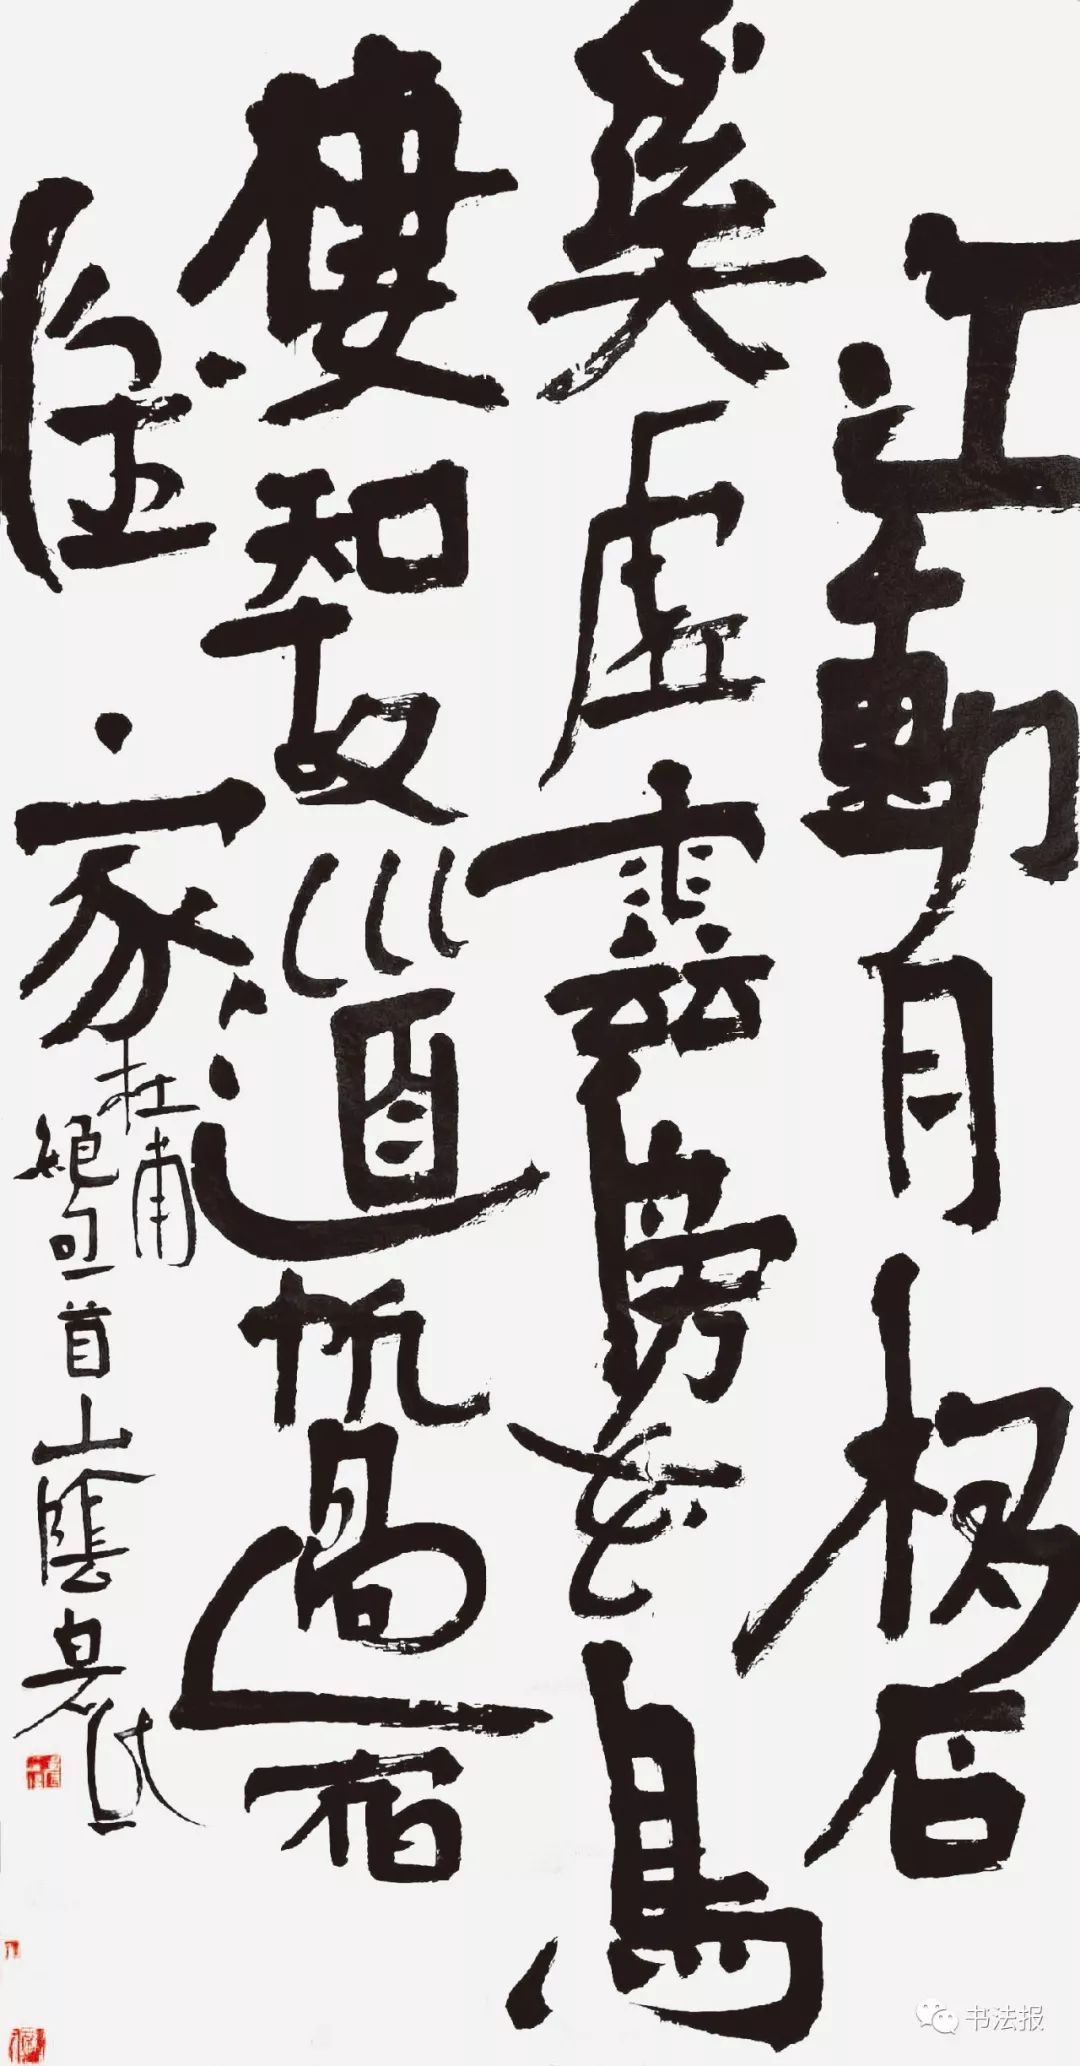 江動月移石
溪虛雲傍花鳥
棲知故道帆過宿
誰家
杜甫
絕句一首山陰
书法报